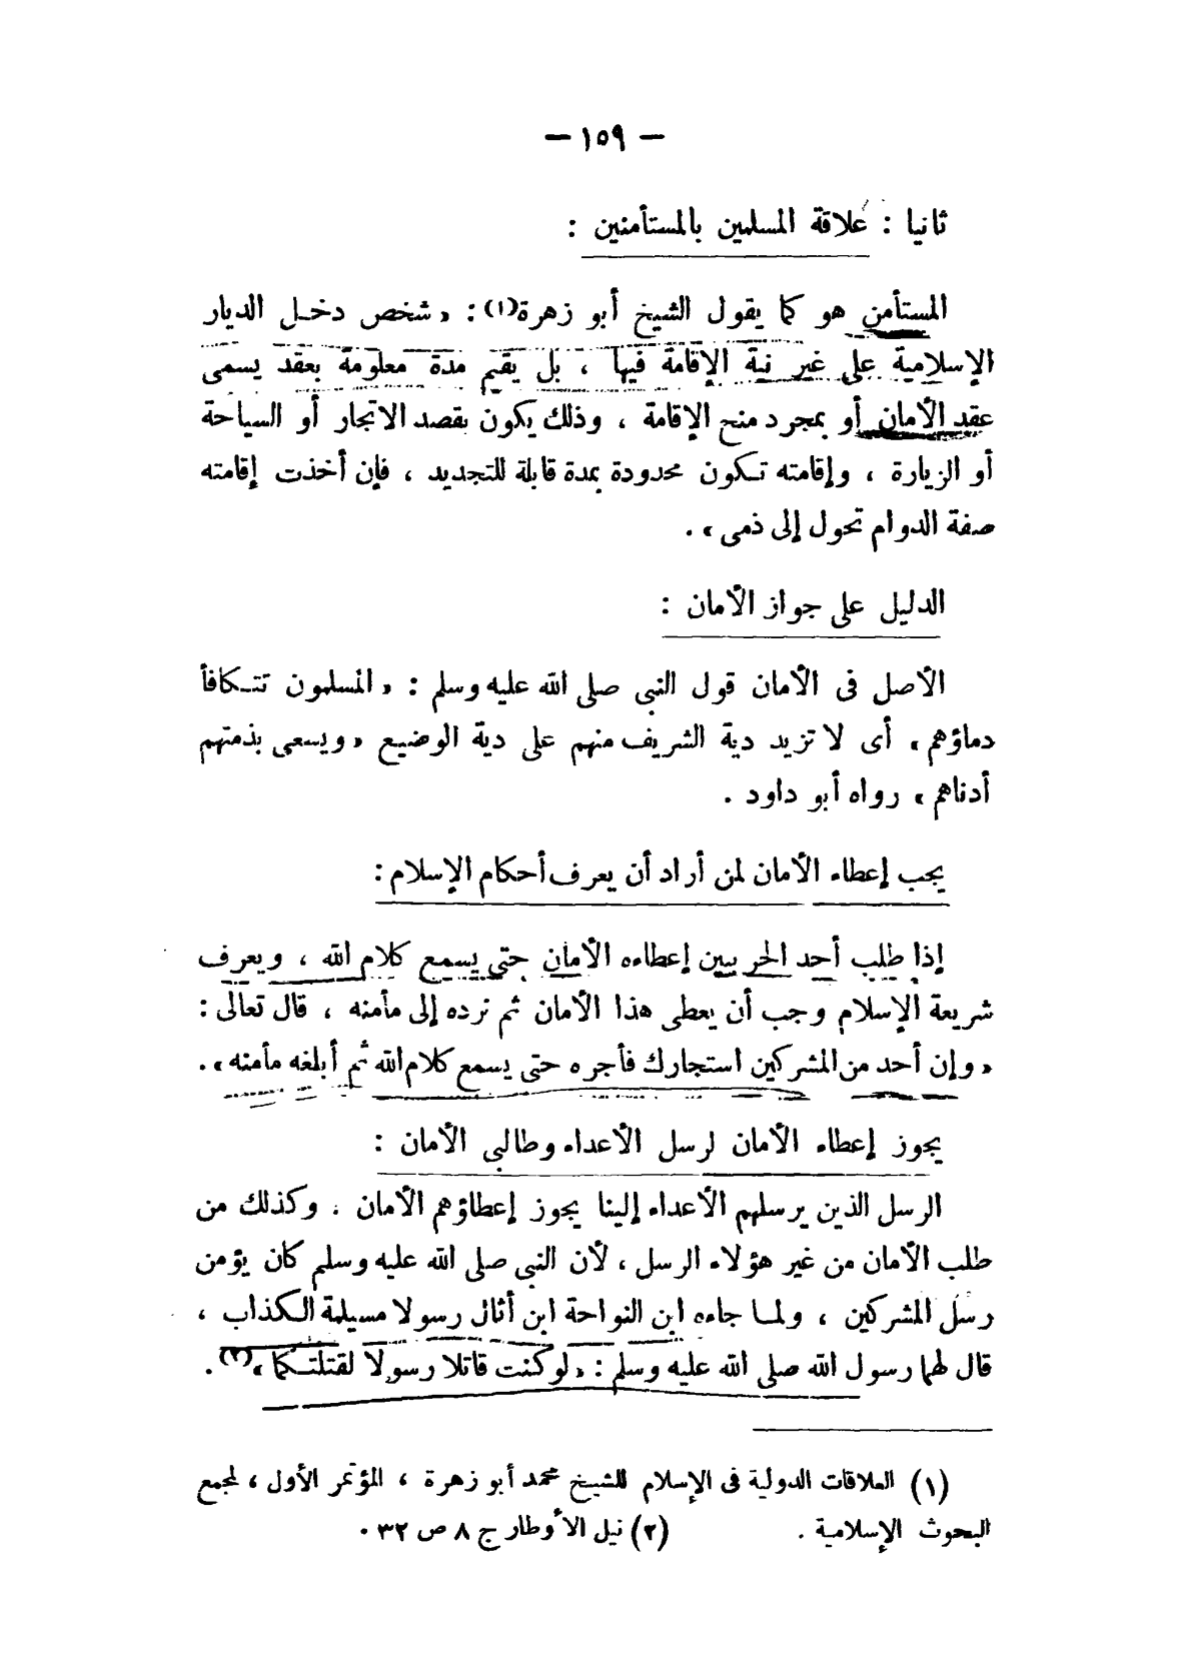 — ١٥٩ —
ثانيا : علاقة المسلمين بالمستأمنين :
المستأمن هو كما يقول الشيخ أبو زهرة(١) : « شخص دخل الديار
الإسلامية على غير نية الإقامة فيها ، بل يقيم مدة معلومة بعقد يسمى
عقد الأمان أو بمجرد منح الإقامة ، وذلك يكون بقصد الاتجار أو السياحة
أو الزيارة ، وإقامته تكون محدودة بمدة قابلة للتجديد ، فإن أخذت إقامته
صفة الدوام تحول إلى ذمى » .
الدليل على جواز الأمان :
الأصل فى الأمان قول النبى صلى الله عليه وسلم : « المسلمون تتكافأ
دماؤهم » أى لا تزيد دية الشريف منهم على دية الوضيع « ويسعى بذمتهم
أدناهم » رواه أبو داود .
يجب إعطاء الأمان لمن أراد أن يعرف أحكام الإسلام :
إذا طلب أحد الحربيين إعطاءه الأمان حتى يسمع كلام الله ، ويعرف
شريعة الإسلام وجب أن يعطى هذا الأمان ثم نرده إلى مأمنه ، قال تعالى :
« وإن أحد من المشركين استجارك فأجره حتى يسمع كلام الله ثم أبلغه مأمنه » .
يجوز إعطاء الأمان لرسل الأعداء وطالبى الأمان :
الرسل الذين يرسلهم الأعداء إلينا يجوز إعطاؤهم الأمان ، وكذلك من
طلب الأمان من غير هؤلاء الرسل ، لأن النبى صلى الله عليه وسلم كان يؤمن
رسل المشركين ، ولما جاءه ابن النواحة ابن أثال رسولا مسيلمة الكذاب ،
قال لهما رسول الله صلى الله عليه وسلم : « لو كنت قاتلا رسولا لقتلتكما »(٢) .
(١) العلاقات الدولية فى الإسلام للشيخ محمد أبو زهرة ، المؤتمر الأول ، لمجمع
البحوث الإسلامية . (٢) نيل الأوطار ج ٨ ص ٣٢ .